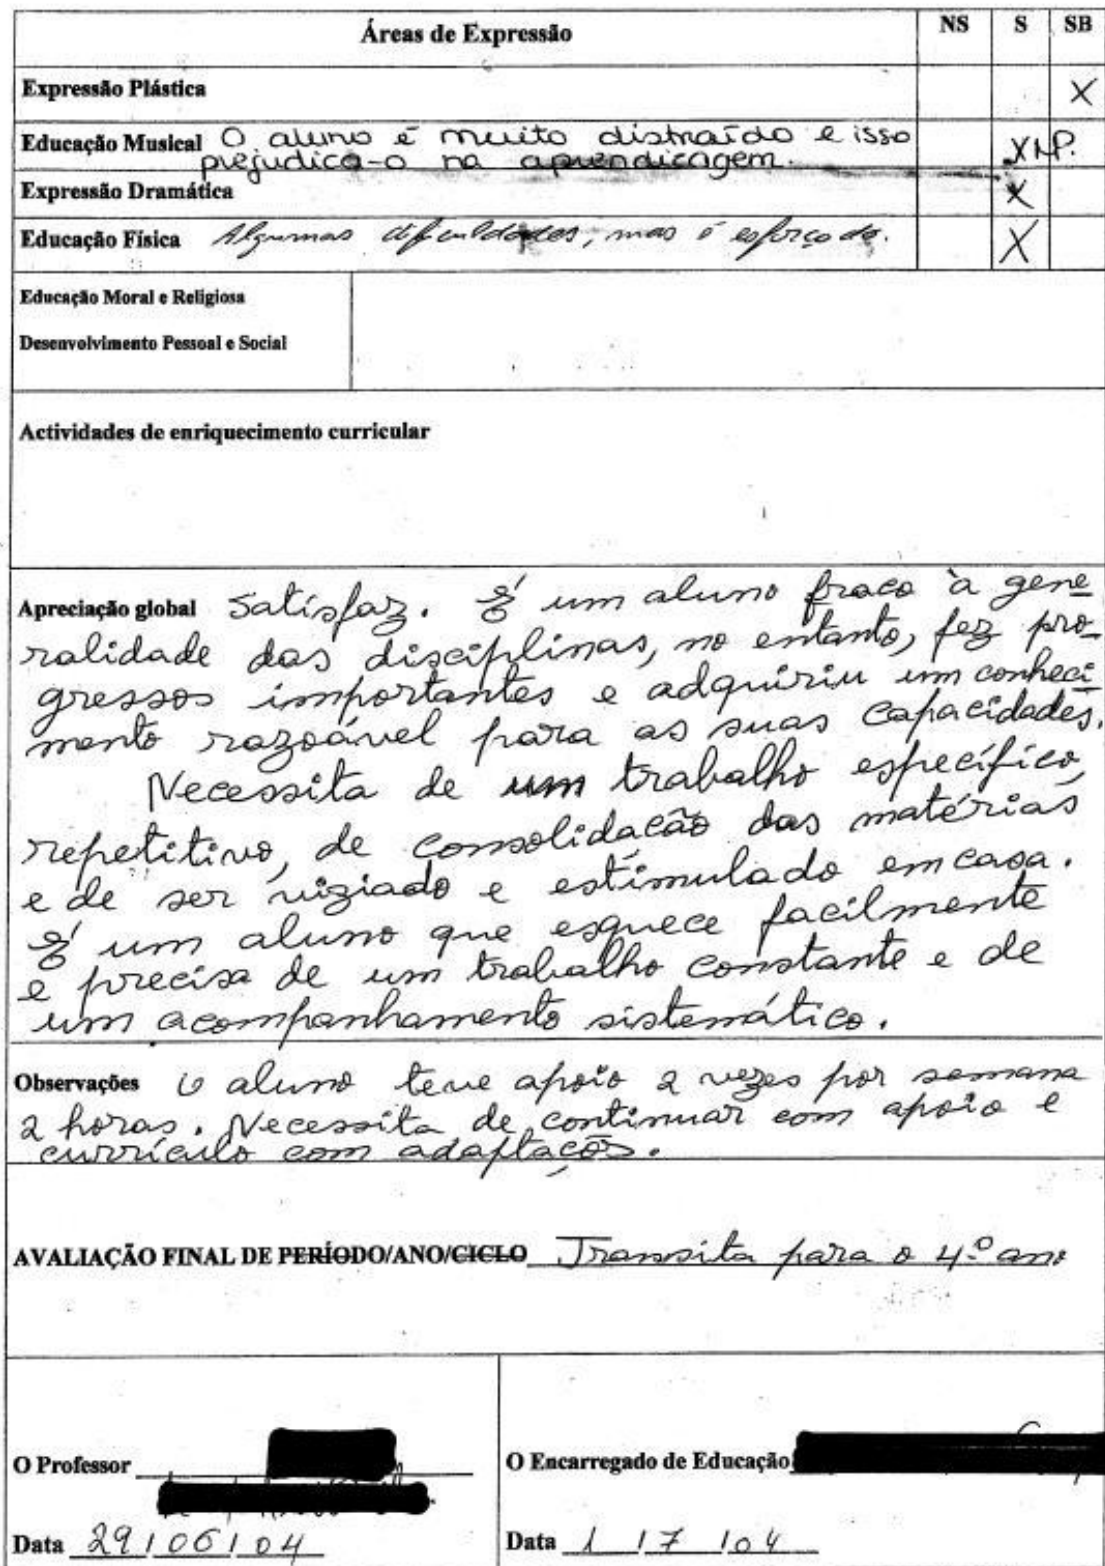 Áreas de Expressão NS S SB
Expressão Plástica X
Educação Musical O aluno é muito distraído e isso
prejudica-o na aprendizagem. X N.P.
Expressão Dramática X
Educação Física Algumas dificuldades, mas é esforçado. X
Educação Moral e Religiosa
Desenvolvimento Pessoal e Social
Actividades de enriquecimento curricular
Apreciação global Satisfaz. É um aluno fraco à gene
ralidade das disciplinas, no entanto, fez pro-
gressos importantes e adquiriu um conheci
mento razoável para as suas capacidades.
Necessita de um trabalho específico,
repetitivo, de consolidação das matérias
e de ser vigiado e estimulado em casa.
É um aluno que esquece facilmente
e precisa de um trabalho constante e de
um acompanhamento sistemático.
Observações O aluno teve apoio 2 vezes por semana
2 horas. Necessita de continuar com apoio e
currículo com adaptações.
AVALIAÇÃO FINAL DE PERÍODO/ANO/CICLO Transita para o 4º ano
O Professor
O Encarregado de Educação
Data 29/06/04
Data 1/7/04